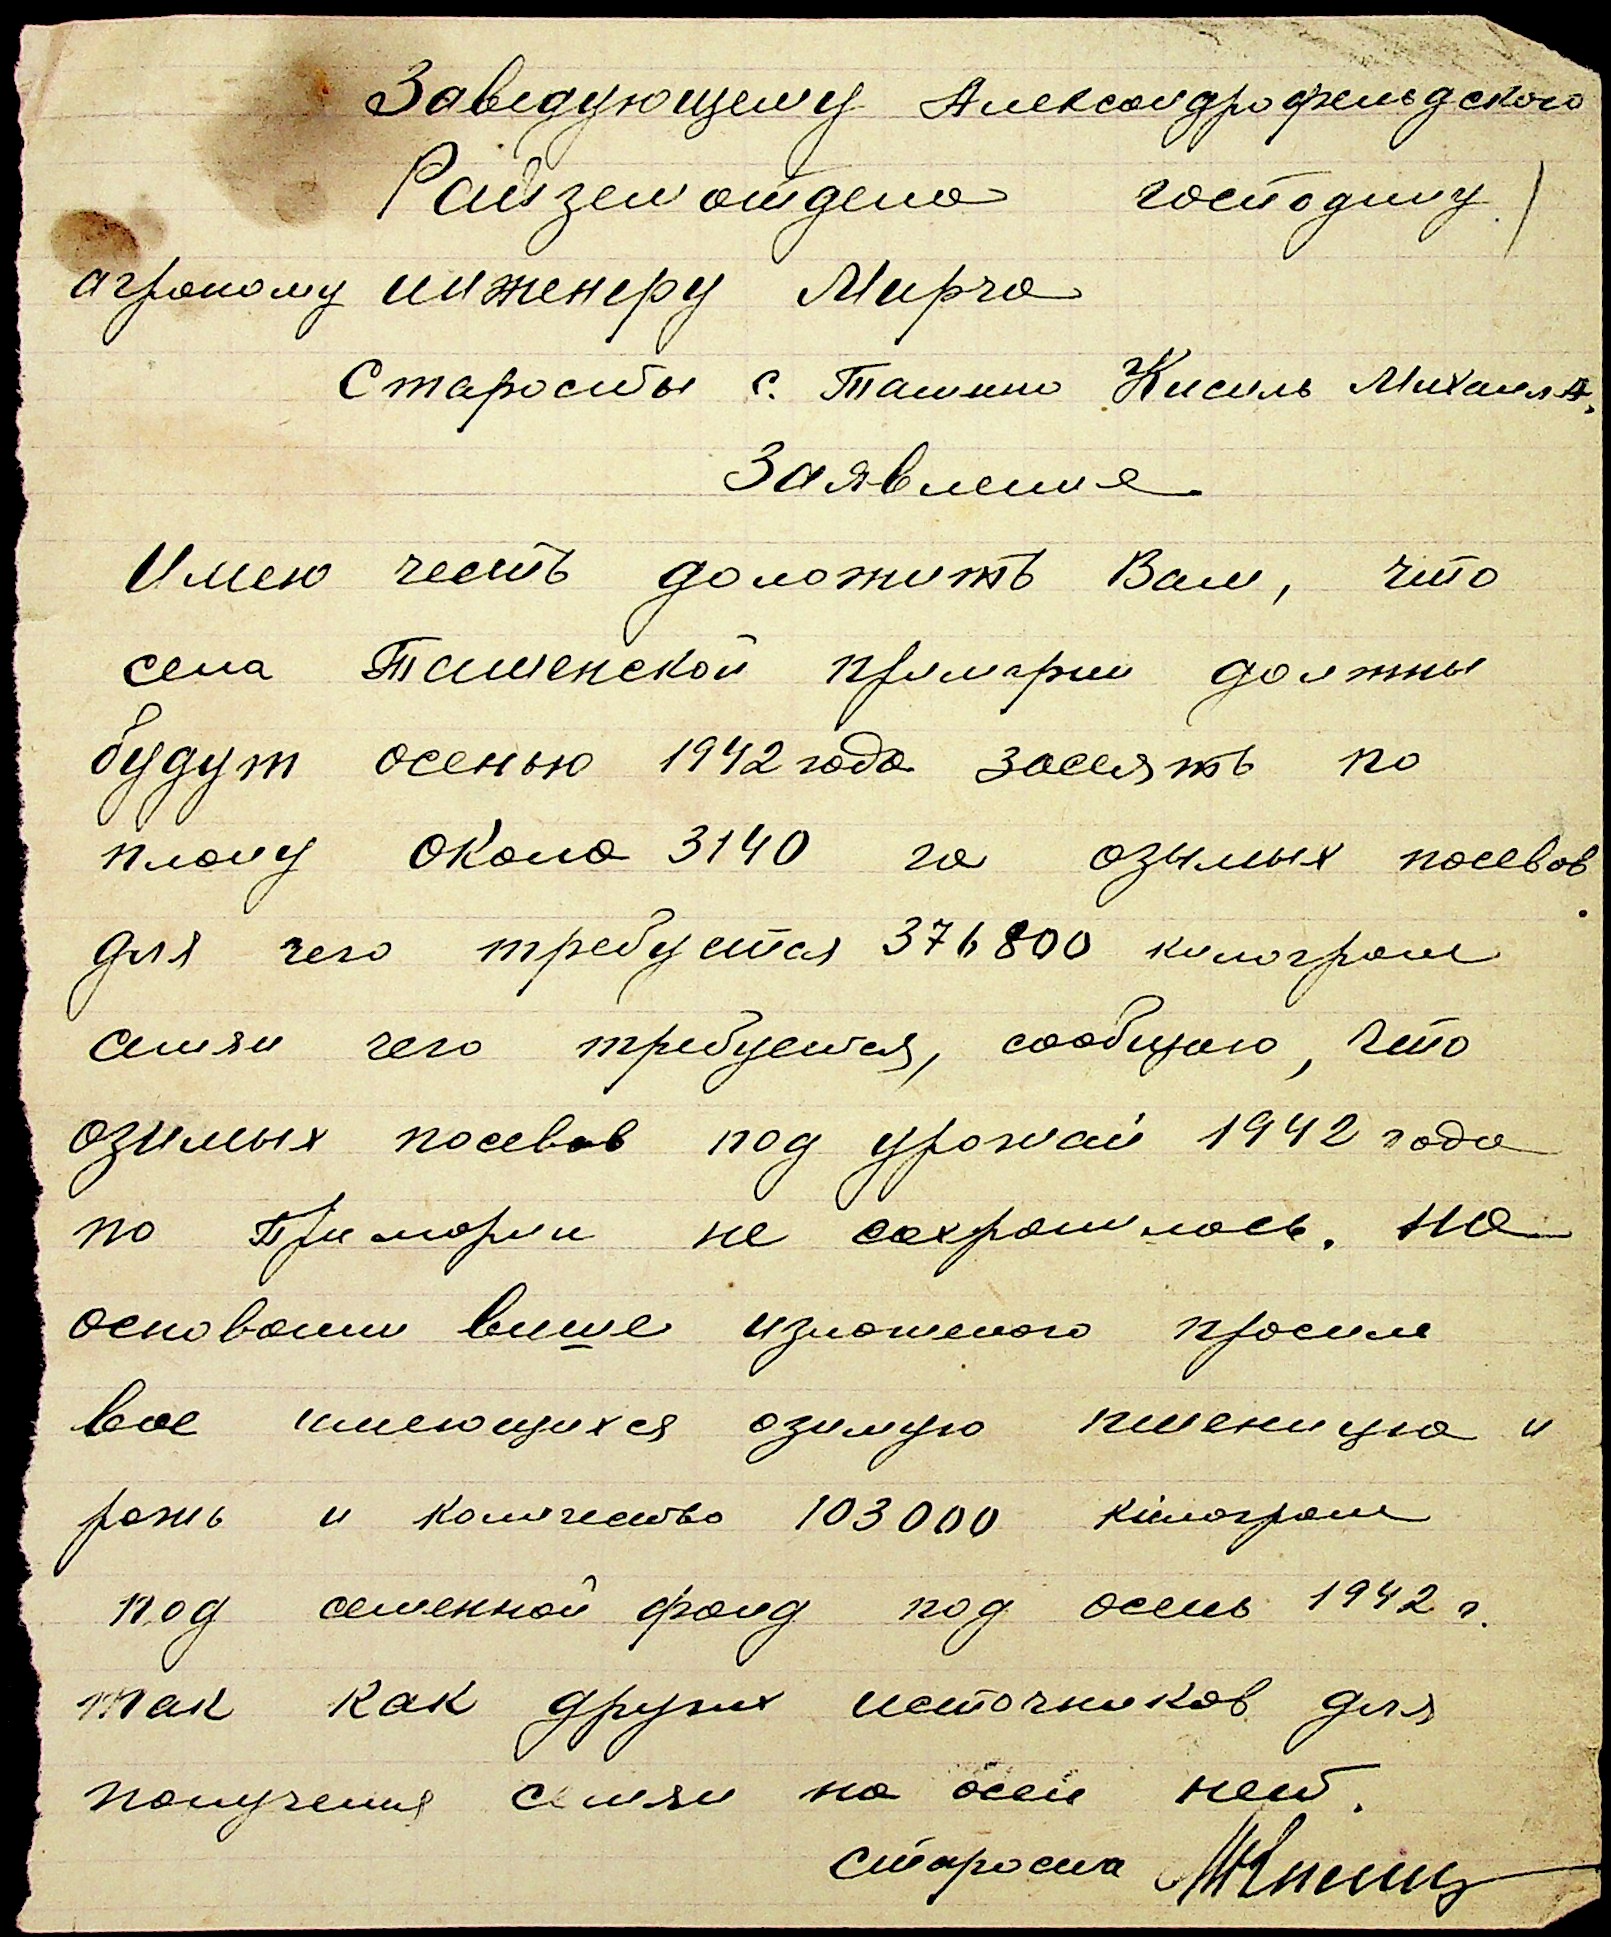 Заведующему Александрофельдского
Райземотдела господину
агроному инженеру Мирча
Старосты с. Ташино Кисиль Михаил А.
Заявление
Имею честь доложить Вам, что
села Ташенской примарии должны
будут осенью 1942 года засеять по
плану около 3140 га озымых посевов
для чего требуется 376800 килограм
семян чего требуется, сообщаю, что
озимых посевов под урожай 1942 года
по Примории не сохранилось. На
основании више изложеного просим
все имеющихся озимую пшеницю и
рожь и количество 103000 кілограм
под семенной фонд под осень 1942 г.
так как других источников для
получения семян на осен нет.
староста